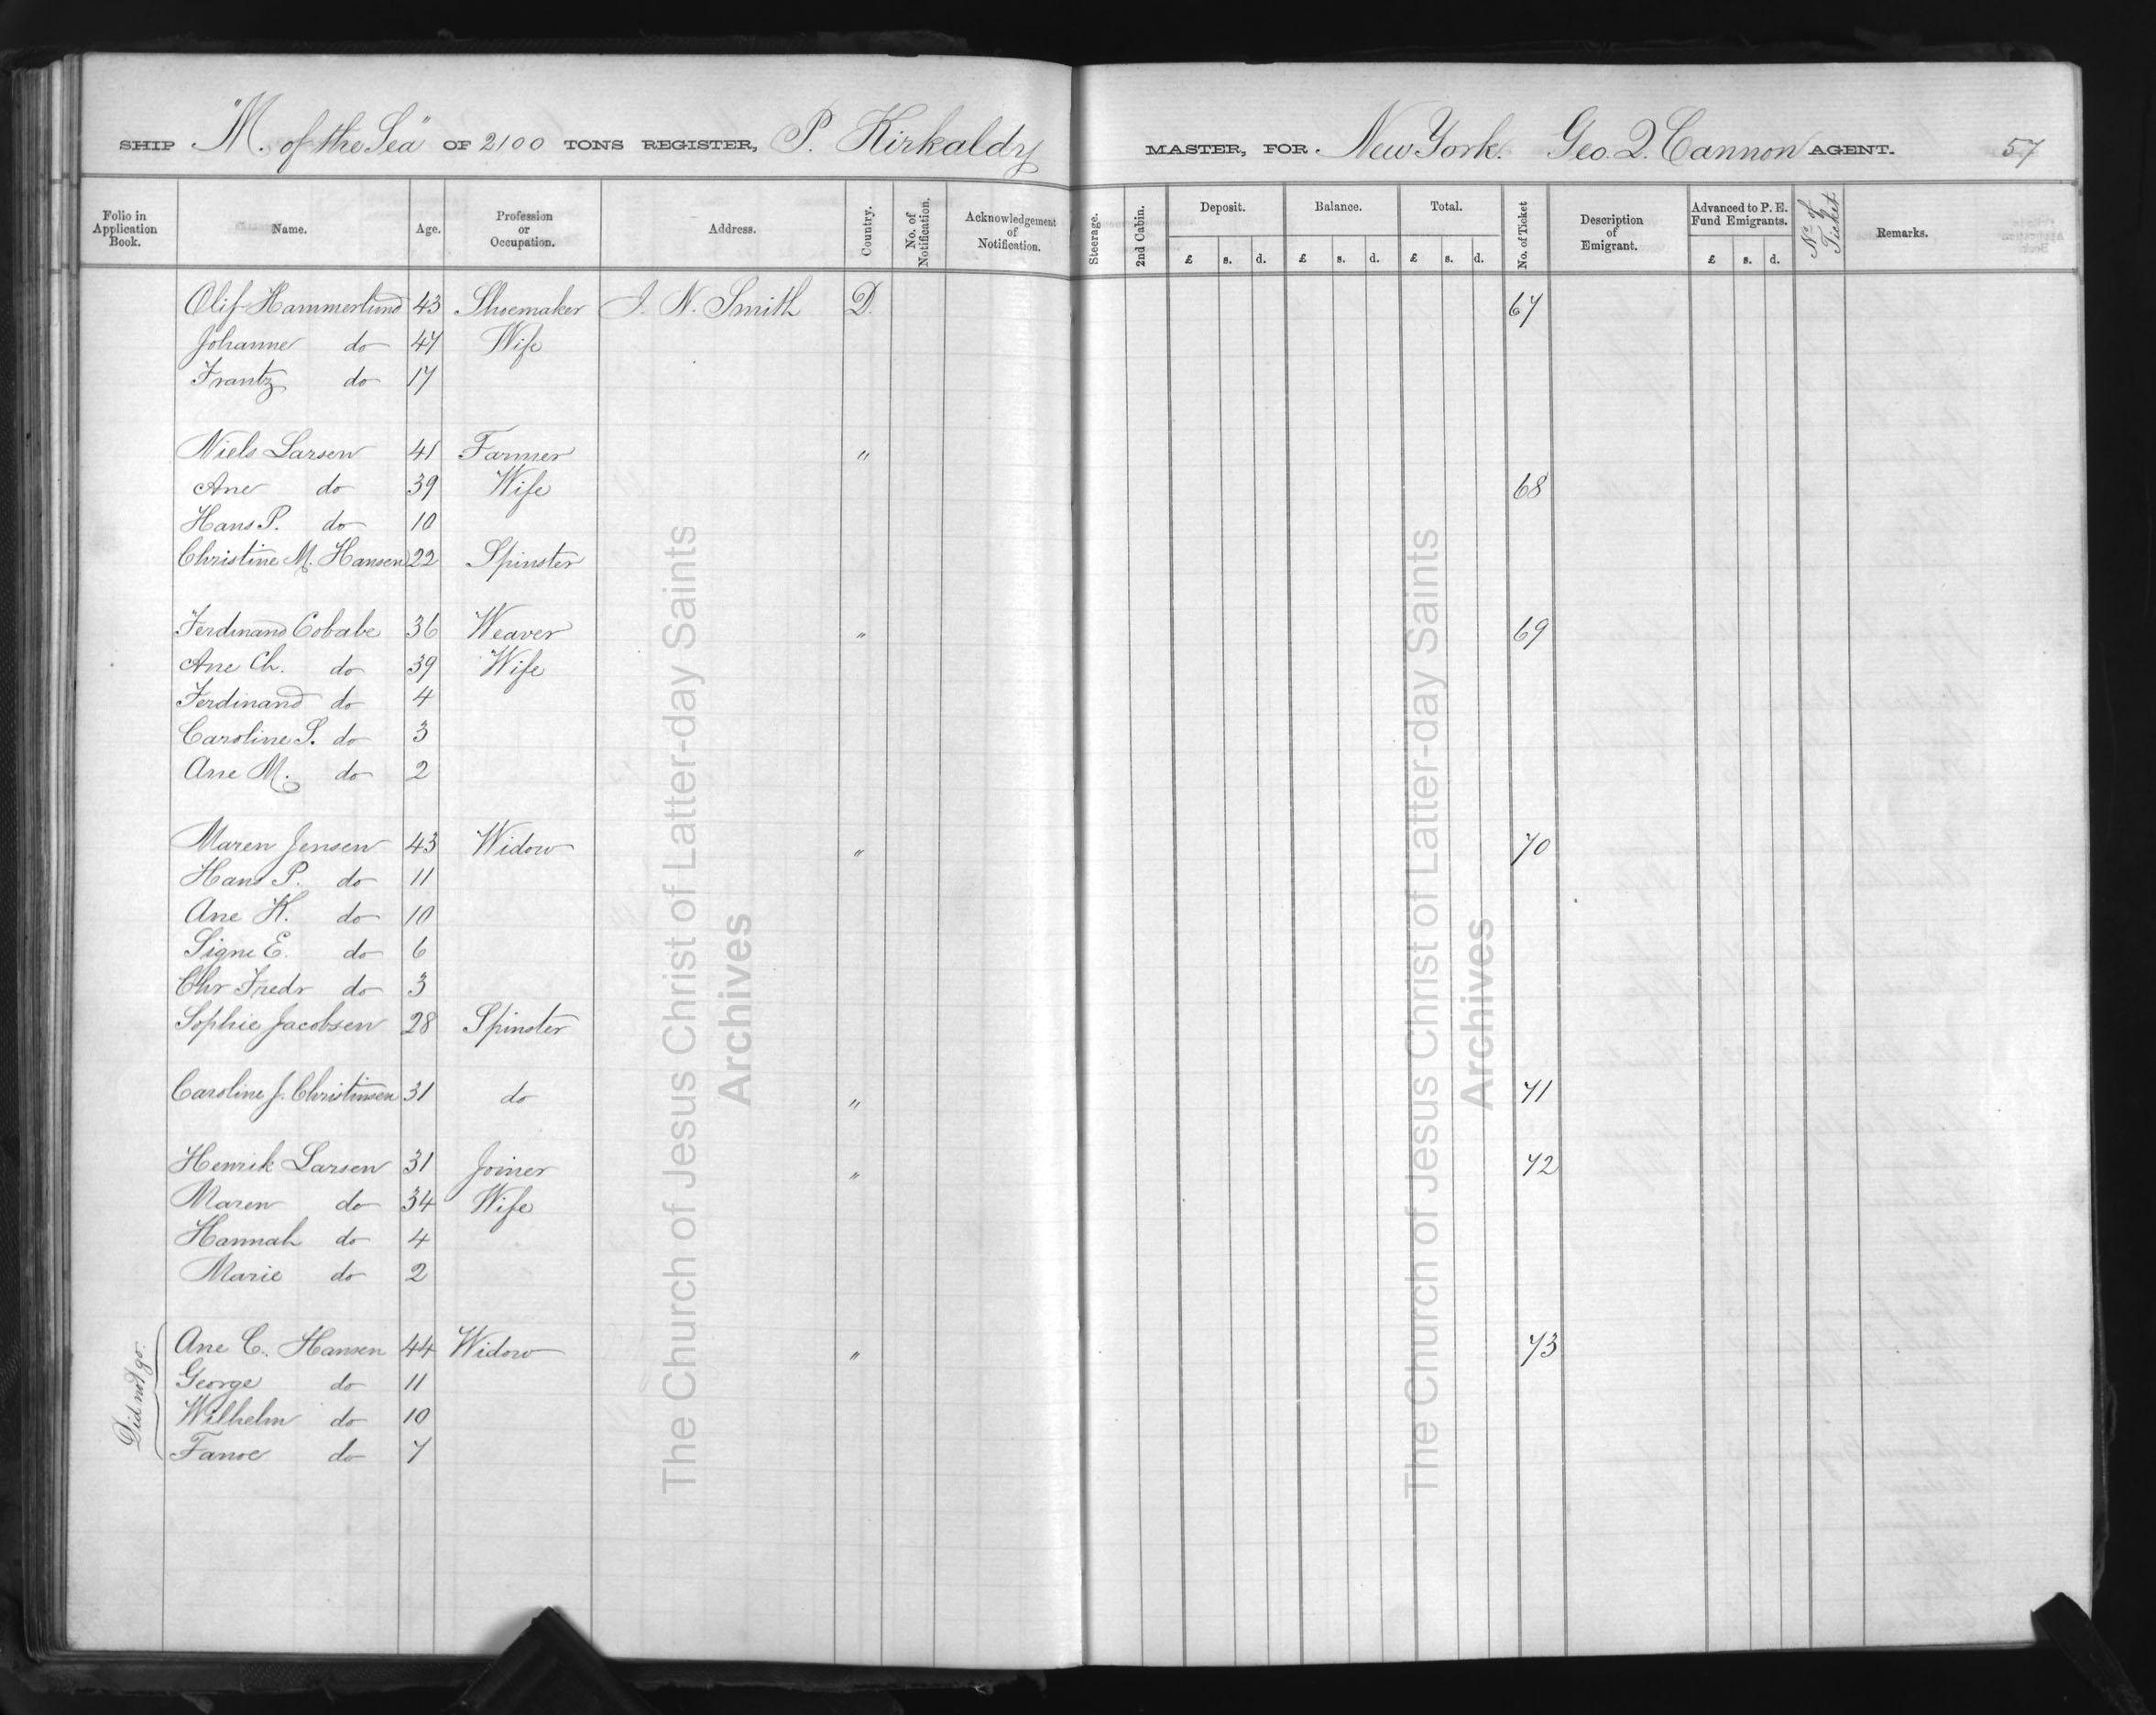 SHIP "M. of the Sea" OF 2100 TONS REGISTER, P. Kirkaldy MASTER, FOR New York. Geo. Q. Cannon AGENT. 57
Folio in Application Book. Name. Age. Profession or Occupation. Address. Country. No. of Notification. Acknowledgement of Notification. Steerage. 2nd Cabin. Deposit. Balance. Total. No. of Ticket Description of Emigrant. Advanced to P. E. Fund Emigrants. No of Ticket Remarks.
£ s. d. £ s. d. £ s. d. £ s. d.
Olif Hammerlund 43 Shoemaker J. N. Smith D. 67
Johanne do 47 Wife
Frantz do 17
Niels Larsen 41 Farmer "
Ane do 39 Wife 68
Hans P. do 10
Christine M. Hansen 22 Spinster
Ferdinand Cobabe 36 Weaver " 69
Ane Ch. do 39 Wife
Ferdinand do 4
Caroline S. do 3
Ane M. do 2
Maren Jensen 43 Widow " 70
Hans P. do 11
Ane K. do 10
Signe E. do 6
Chr Fredr do 3
Sophie Jacobsen 28 Spinster
Caroline J. Christinsen 31 do " 71
Henrik Larsen 31 Joiner " 72
Maren do 34 Wife
Hannah do 4
Marie do 2
Did not go.
Ane C. Hansen 44 Widow " 73
George do 11
Wilhelm do 10
Fanoe do 7
The Church of Jesus Christ of Latter-day Saints
Archives
The Church of Jesus Christ of Latter-day Saints
Archives